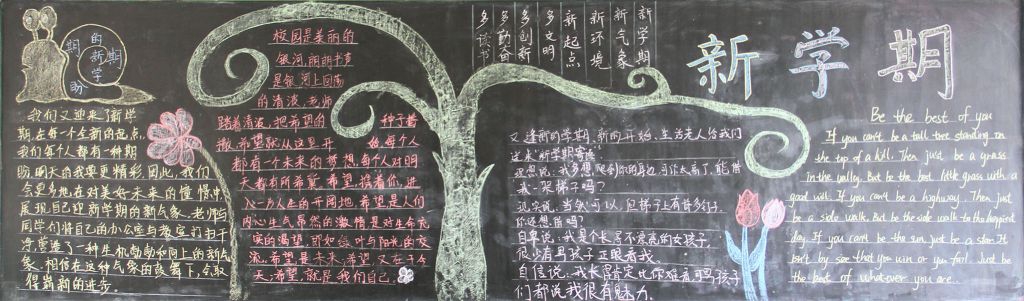 新学期
的新学期
期盼
我们又迎来了新学
期,在每一个全新的起点,
我们每个人都有一种期
盼,明天的我要更精彩,因此,我们
会更多地在对美好未来的憧憬中,
展现自己迎新学期的新气象。老师与
同学们将自己的办公室与教室打扫干
净,营造了一种生机勃勃和向上的新气
象,相信在这种气象的鼓舞下,会取
得崭新的进步。
校园是美丽的
银河,朗朗书声
是银河上回荡
的清波,老师
踏着清波,把希望的种子播
撒,希望就从这里开 给每个人
都有一个未来的梦想,每个人对明
天都有所希冀,希望,揣着你,进
入一方人生的开阔地,希望是人们
内心生气昂然的激情是对生命充
实的渴望,即如绿叶与阳光的交
流,希望是未来,希望又在于今
天,希望,就是我们自己。
新学期
新气象
新环境
新起点
多文明
多创新
多勤奋
多读书
又逢新的学期,新的开始,生活老人给我们
送来新学期寄语
理想说:我多想爬到你的身边,可你太高了,能借
我一架梯子吗?
现实说:当然可以,但梯子上有许多钉子,
你还想借吗?
自卑说:我是个长得不漂亮的女孩子,
很少有男孩子正眼看我。
自信说:我长得肯定比你难看,可孩子
们都说我很有魅力。
Be the best of you
If you can't be a tall tree standing on
the top of a hill. Then just be a grass
in the valley. But be the best little grass with a
good will. If you can't be a highway. Then just
be a side walk. But be the side walk to the happiest
day. If you can't be the sun, just be a star. It
isn't by size that you win or you fail. Just be
the best of whatever you are.